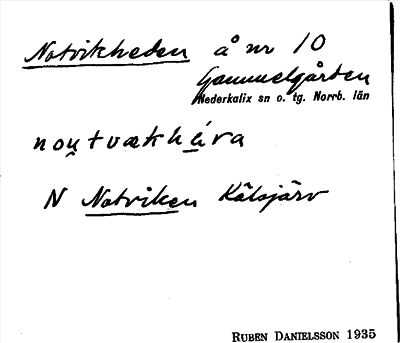 Notvikheden å nr 10
Gammelgården
Nederkalix sn o. tg. Norrb. län
nou̯tvækhé̠va
N Notviken Kälsjärv
RUBEN DANIELSSON 1935